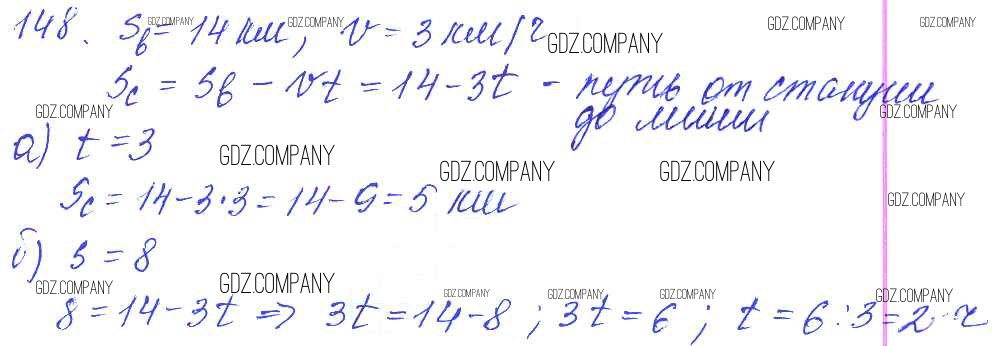 148. Sв = 14 км, v = 3 км/ч
Sс = Sв - vt = 14 - 3t - путь от станции
до мыши
а) t = 3
Sс = 14 - 3·3 = 14 - 9 = 5 км
б) S = 8
8 = 14 - 3t => 3t = 14 - 8 ; 3t = 6 ; t = 6 : 3 = 2 ч
GDZ.COMPANY GDZ.COMPANY GDZ.COMPANY GDZ.COMPANY
GDZ.COMPANY
GDZ.COMPANY GDZ.COMPANY
GDZ.COMPANY
GDZ.COMPANY GDZ.COMPANY
GDZ.COMPANY
GDZ.COMPANY
GDZ.COMPANY GDZ.COMPANY GDZ.COMPANY GDZ.COMPANY GDZ.COMPANY